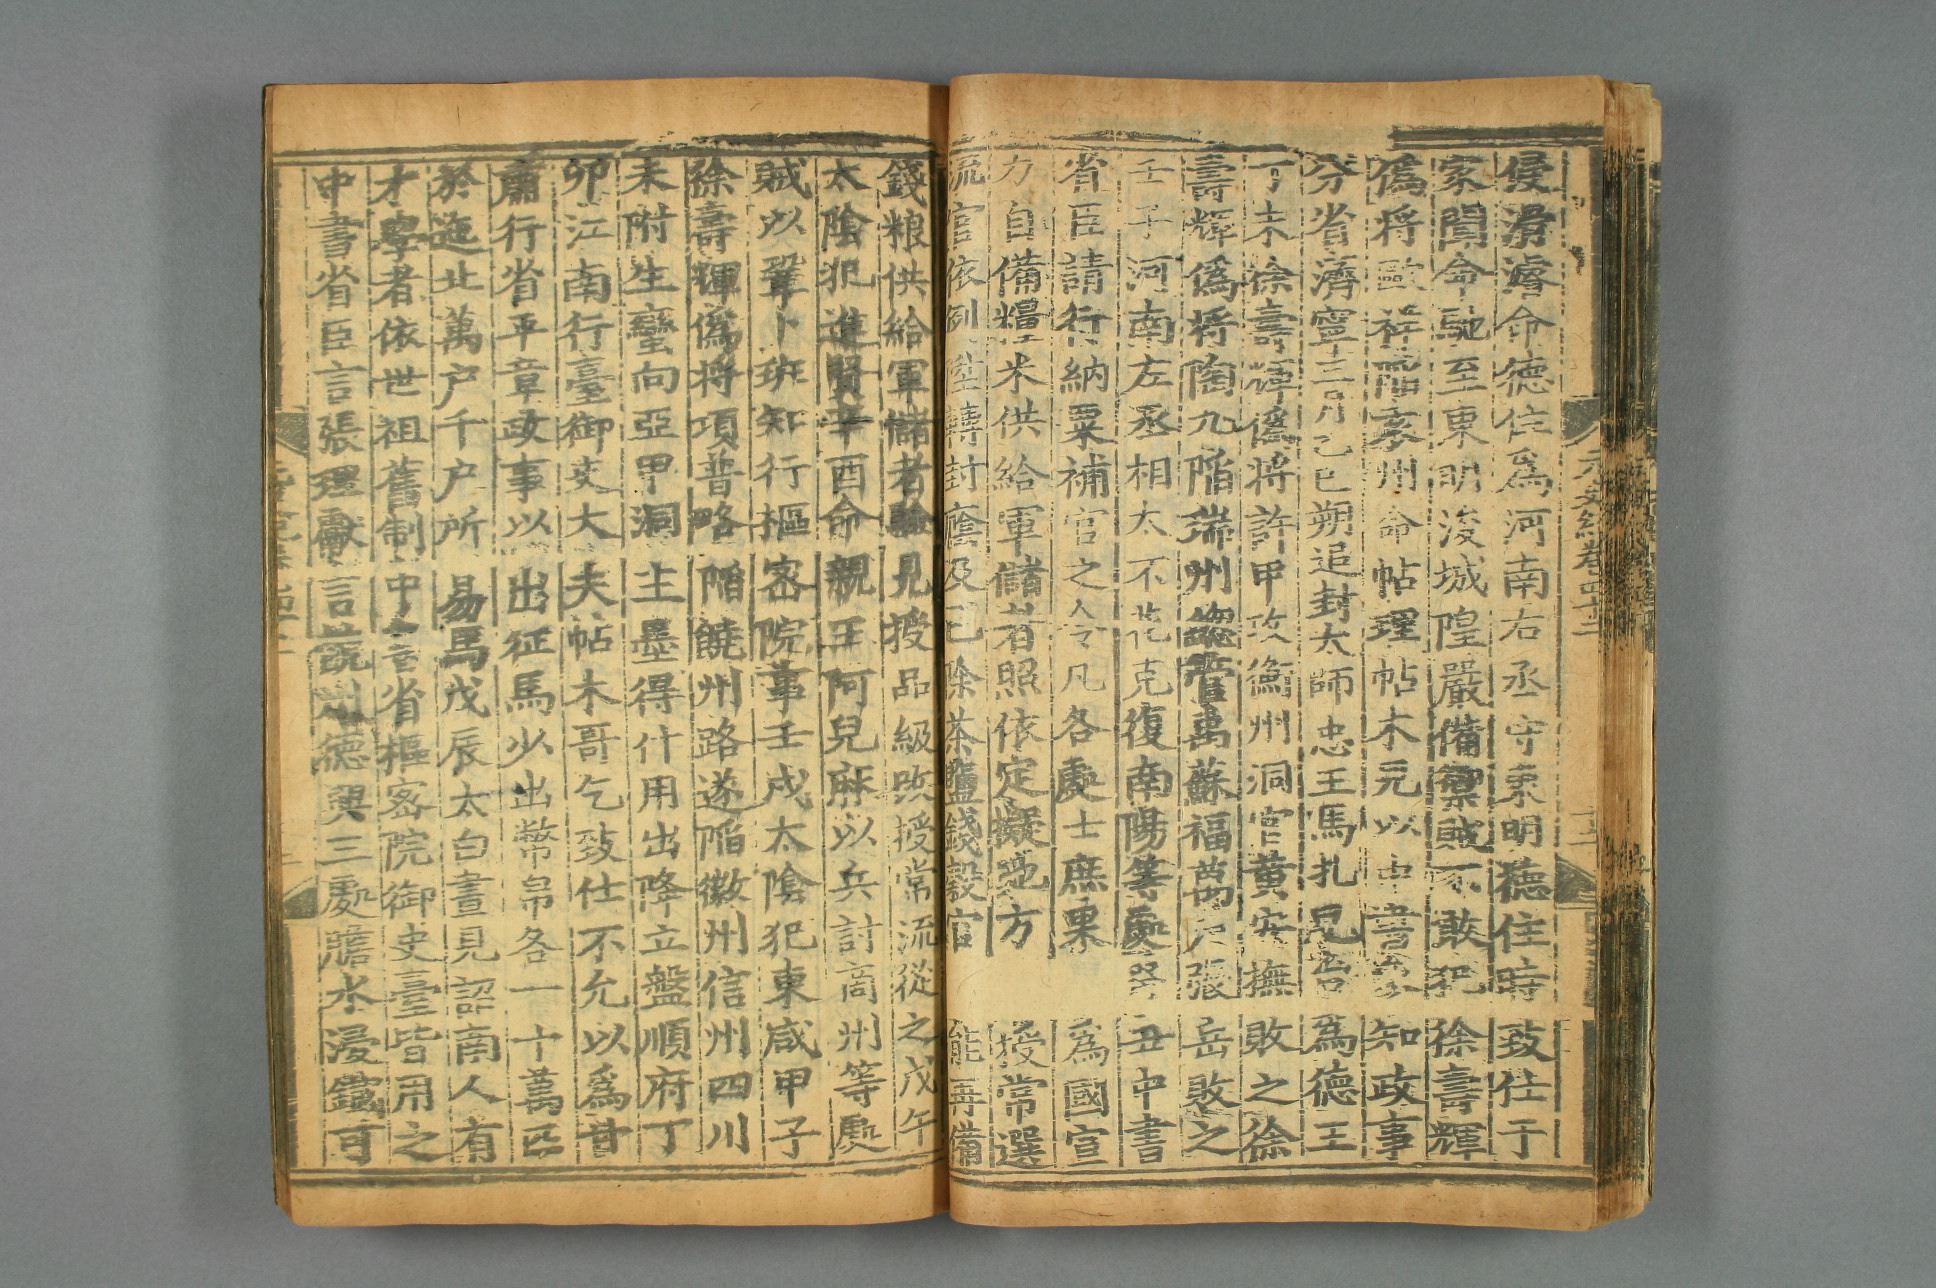 侵滑濬命德住爲河南右丞守東明德住時致仕于
家聞命馳至東明浚城隍嚴備禦賊不敢犯徐壽輝
僞將歐祥陷袁州命帖理帖木兒以中書知政事
分省濟寧三月己巳朔追封太師忠王馬扎兒爲德王
丁未徐壽輝僞將許甲攻衡州洞官黃安撫敗之徐
壽輝僞將陶九陷瑞州總管禹蘇福萬戶張岳敗之
壬子河南左丞相太不花克復南陽等處丑中書
省臣請行納粟補官之令凡各處士庶果爲國宣
力自備糧米供給軍儲者照依定擬地方授常選
流官依例陞轉封廕及已除茶鹽錢穀官能再備
錢粮供給軍儲者驗見授品級改授常流從之戊午
太陰犯進賢辛酉命親王阿兒麻以兵討商州等處
賊以鞏卜班知行樞密院事壬戌太陰犯東咸甲子
徐壽輝僞將項普略陷饒州路遂陷徽州信州四川
未附生蠻向亞甲洞主墨得什用出降立盤順府丁
卯江南行臺御史大夫帖木哥乞致仕不允以爲甘
肅行省平章政事以出征馬少出幣帛各一十萬匹
於迤北萬户千户所易馬戊辰太白晝見詔南人有
才學者依世祖舊制中書省樞密院御史臺皆用之
中書省臣言張理獻言饒州德興三處膽水浸鐵可
元史紀卷四十二